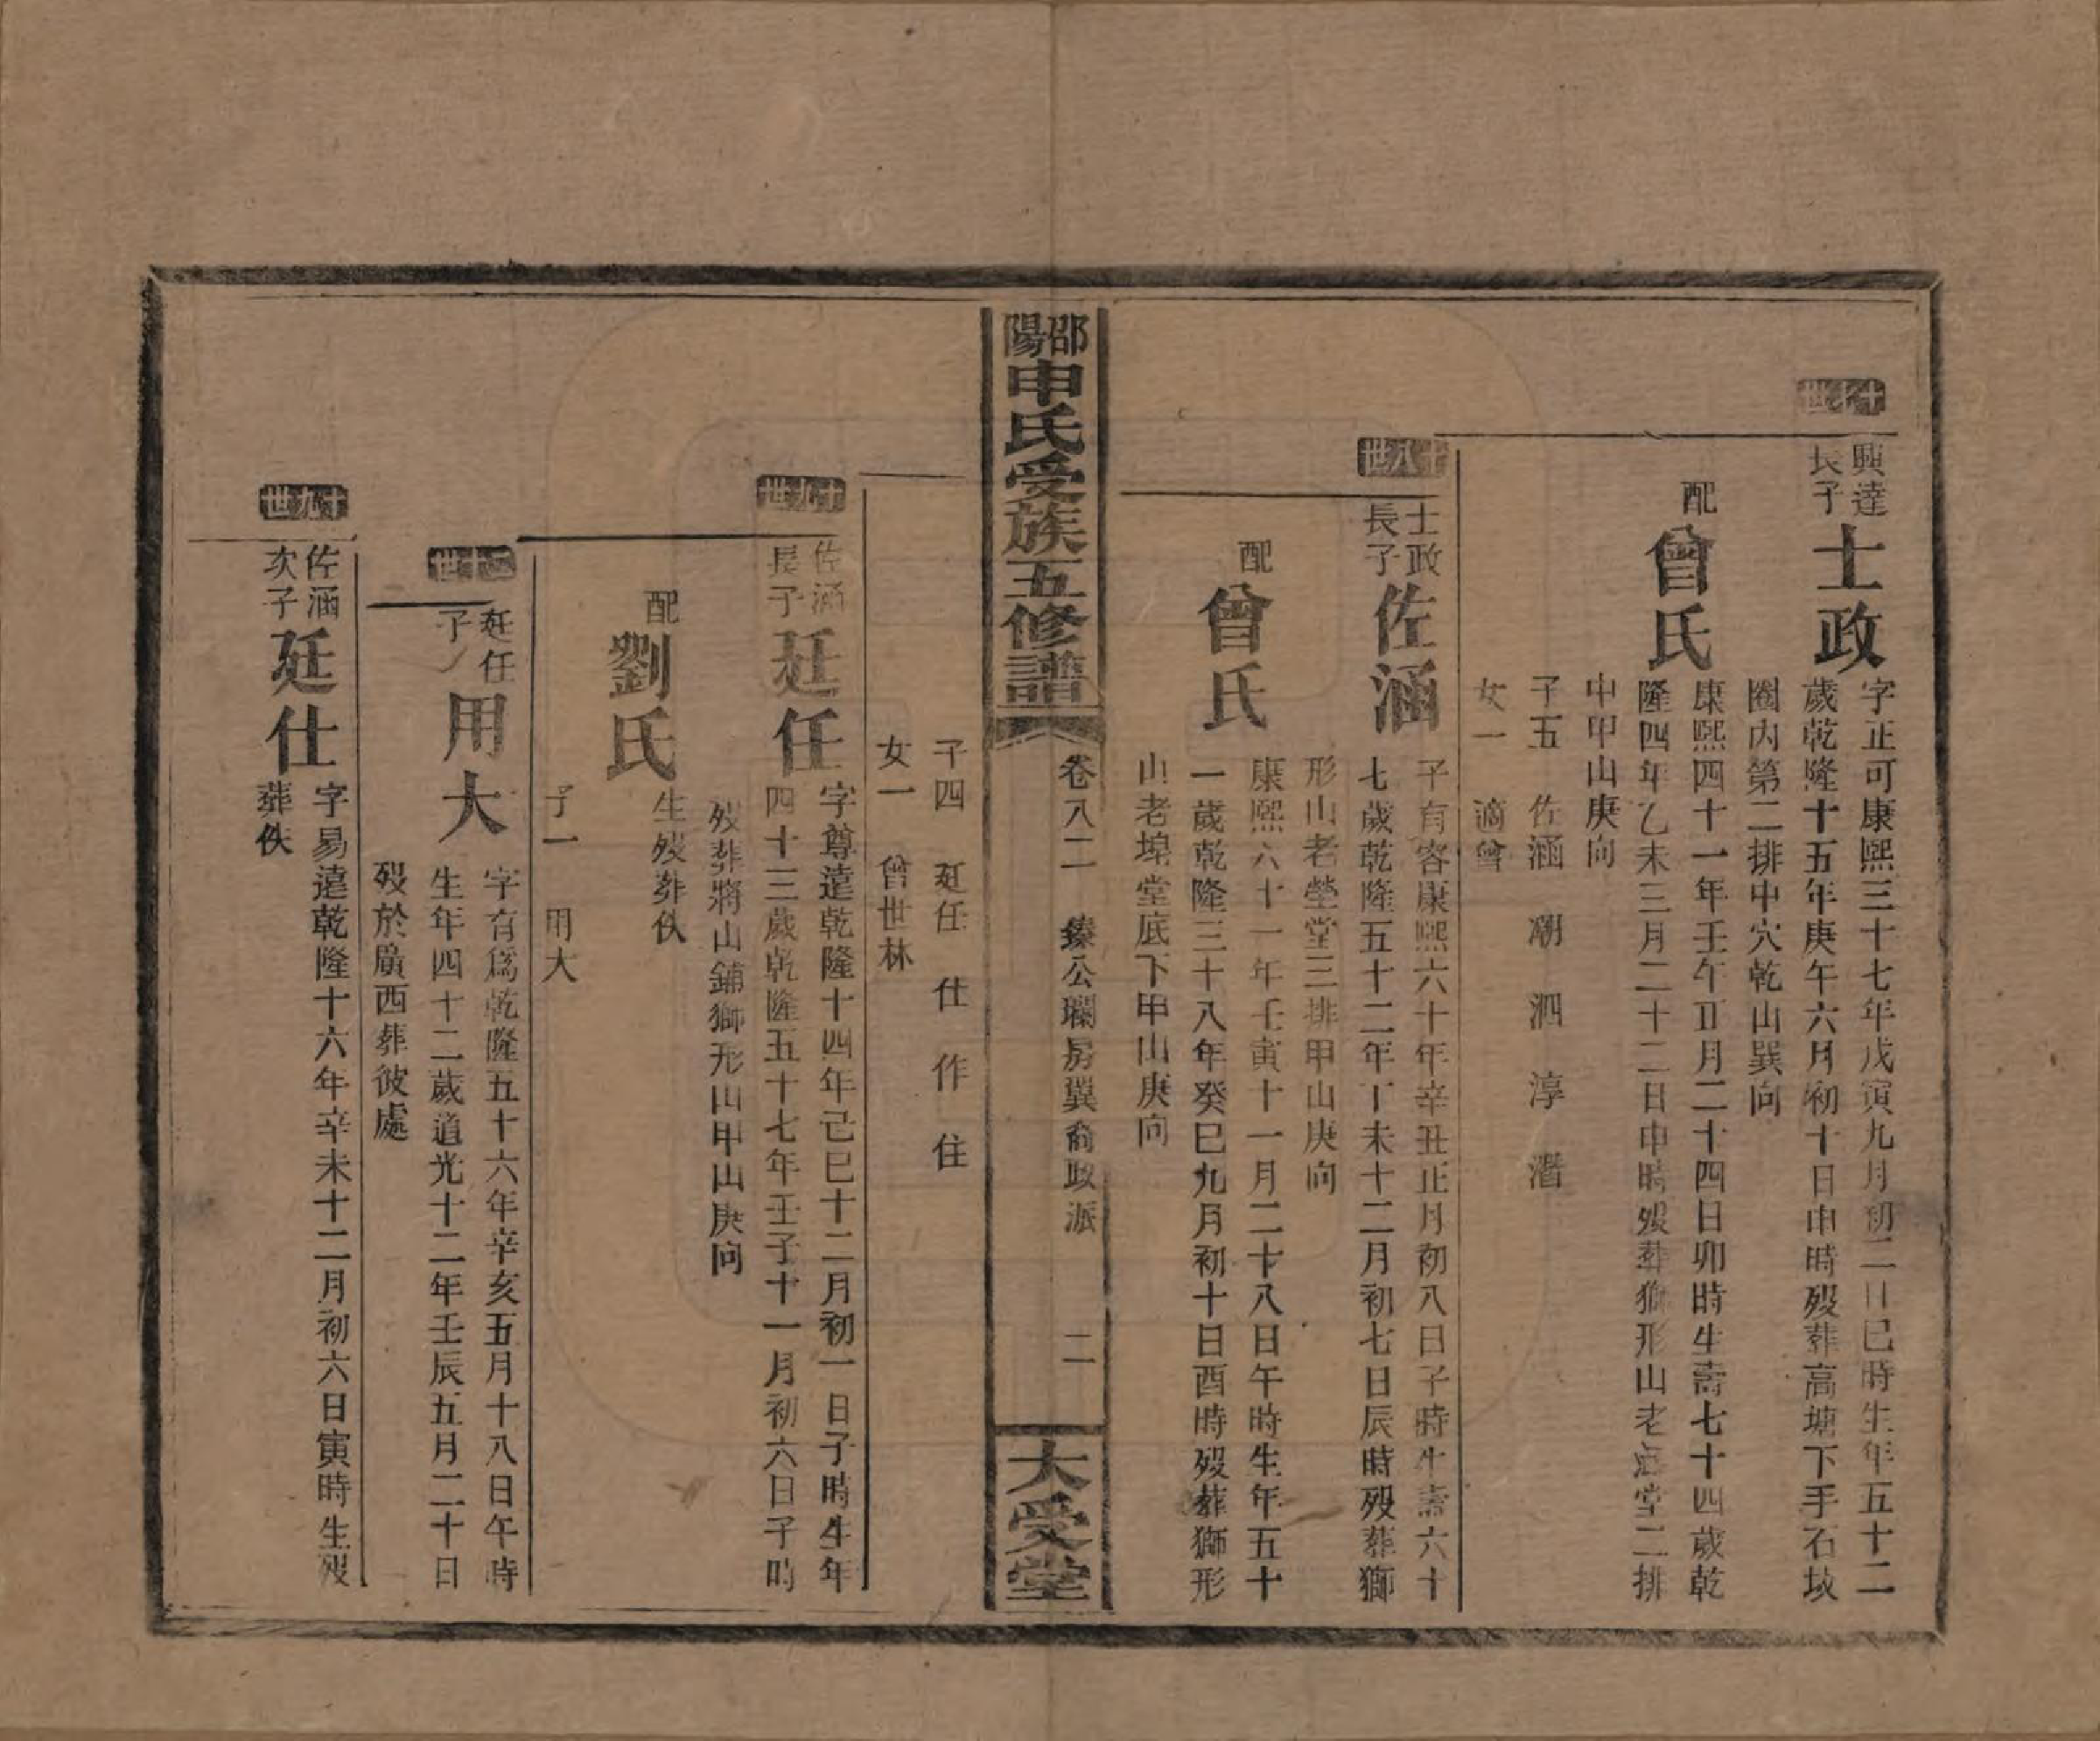 十七世
興達
長子
士政
字正可康熙三十七年戊寅九月初二日巳時生年五十二
歲乾隆十五年庚午六月初十日申時歿葬高塘下手石坡
圈內第二排中穴乾山巽向
配
曾氏
康熙四十一年壬午正月二十四日卯時生壽七十四歲乾
隆四年乙未三月二十二日申時歿葬獅形山老塋堂二排
中甲山庚向
子五 佐涵 潮 泗 淳 潛
女一 適曾
十八世
士政
長子
佐涵
字有容康熙六十年辛丑正月初八日子時生壽六十
七歲乾隆五十二年丁未十二月初七日辰時歿葬獅
形山老塋堂三排甲山庚向
配
曾氏
康熙六十一年壬寅十一月二十八日午時生年五十
一歲乾隆三十八年癸巳九月初十日酉時歿葬獅形
山老塋堂底下甲山庚向
邵陽申氏受族五修譜
卷八二 縥公瓓房巽裔政派 二
大受堂
子四 廷任 仕 作 住
女一 曾世林
十九世
佐涵
長子
廷任
字尊遠乾隆十四年己巳十二月初一日子時生年
四十三歲乾隆五十七年壬子十一月初六日子時
歿葬將山鋪獅形山甲山庚向
配
劉氏
生歿葬佚
子一 用大
二十世
廷任
子
用大
字有爲乾隆五十六年辛亥五月十八日午時
生年四十二歲道光十二年壬辰五月二十日
歿於廣西葬彼處
十九世
佐涵
次子
廷仕
字易遠乾隆十六年辛未十二月初六日寅時生歿
葬佚